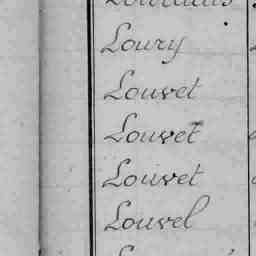 Loury
Louvet
Louvet
Louvet
Louvel